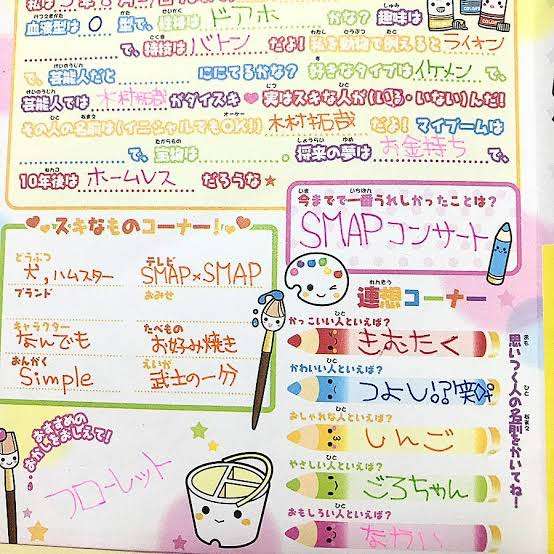 血液型は O 型で、性格は ドアホ かな？趣味は
で、特技は バトン だよ！私を動物で例えると ライオン
で、芸能人だと ににてるかな？ 好きなタイプは イケメン で、
芸能人では 木村拓哉 がダイスキ♥実はスキな人が(いる・いない)んだ！
その人の名前は(イニシャルでもOK!!) 木村拓哉 だよ！マイブームは
で、宝物は 。将来の夢は お金持ち で、
10年後は ホームレス だろうな★
今までで一番うれしかったことは？
SMAPコンサート
スキなものコーナー！
どうぶつ
犬,ハムスター
テレビ
SMAP×SMAP
ブランド
おみせ
キャラクター
なんでも
たべもの
お好み焼き
おんがく
Simple
えいが
武士の一分
おすすめのおかしをおしえて！
フローレット
連想コーナー
思いつく人の名前をかいてね！
かっこいい人といえば？
きむたく
かわいい人といえば？
つよし!?笑
おしゃれな人といえば？
しんご
やさしい人といえば？
ごろちゃん
おもしろい人といえば？
なかい